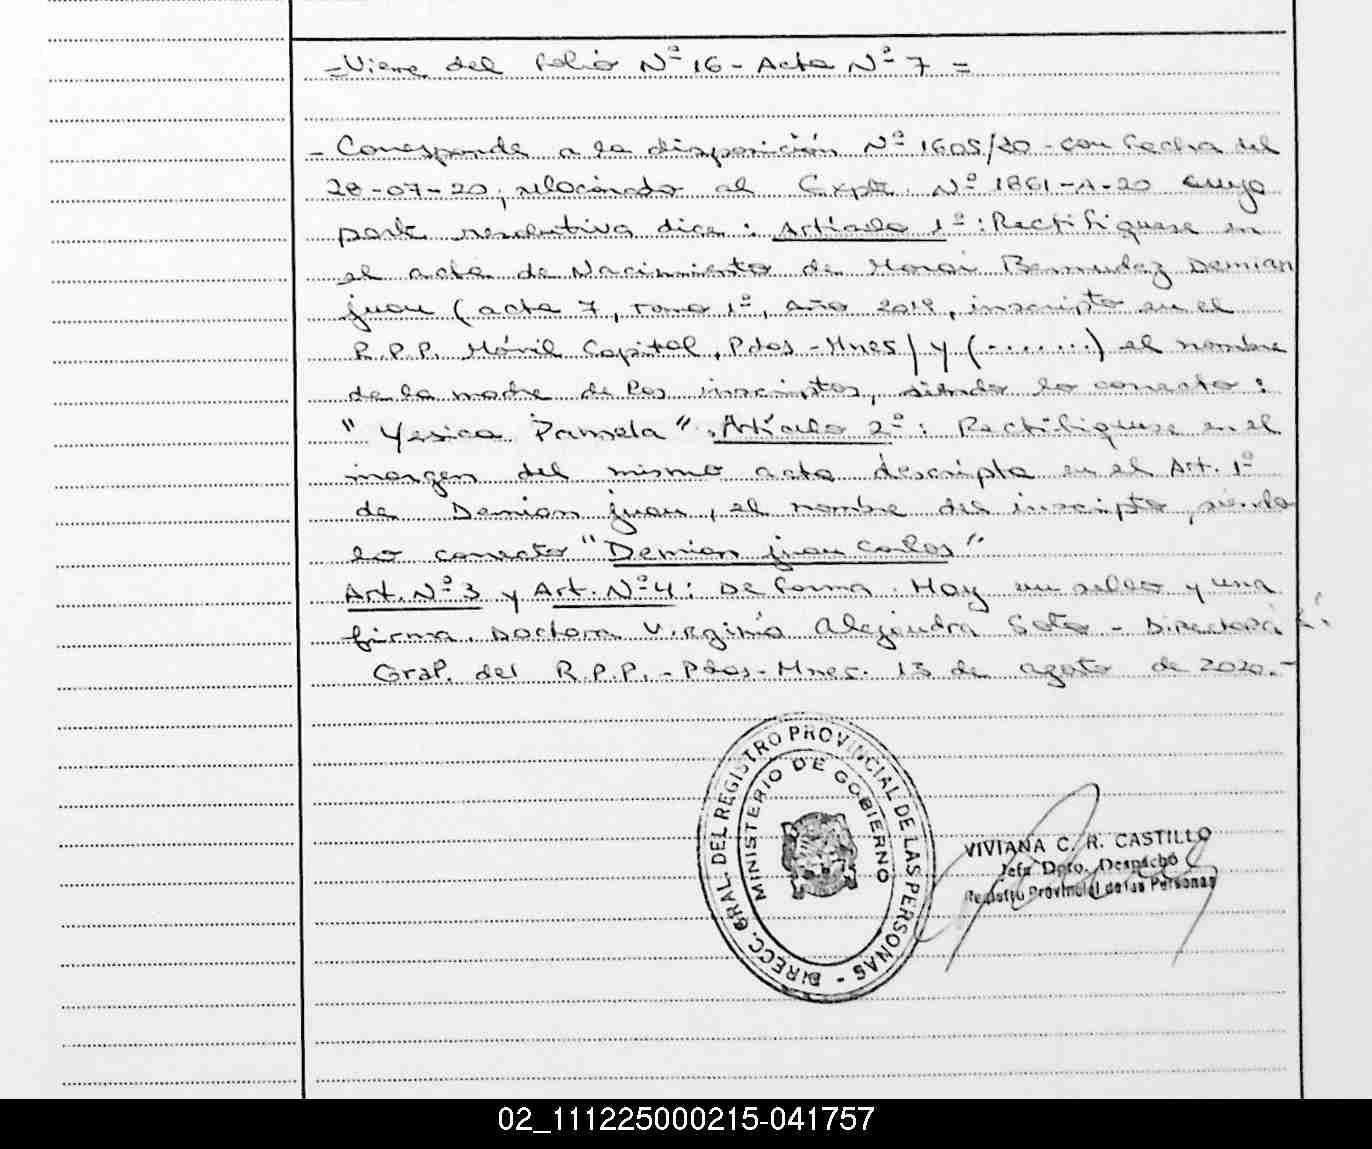 =Viene del folio Nº 16 - Acta Nº 7 =
- Corresponde a la disposición Nº 1605/20 - con fecha del
28-07-20, relacionado al Expte. Nº 1861-A-20 cuyo
parte resolutiva dice: Artículo 1º: Rectifiquese en
el acta de Nacimiento de Bermudez Demian
juan (acta 7, Tomo 1º, año 2019, inscripto en el
R.P.P. Móvil Capital, Pdas - Mnes) y (........) el nombre
de la madre de los inscriptos, siendo lo correcto:
"Yesica Pamela". Artículo 2º: Rectifiquese en el
margen del mismo acta descripta en el Art. 1º
de Demian juan, el nombre del inscripto, siendo
lo correcto "Demian juan Carlos"
Art. Nº 3 y Art. Nº 4: De forma. Hay un sello y una
firma. Doctora Virginia Alejandra Soto - Directora
Gral. del R.P.P. - Pdas - Mnes. 13 de agosto de 2020.-
DIRECC. GRAL. DEL REGISTRO PROVINCIAL DE LAS PERSONAS -
MINISTERIO DE GOBIERNO
VIVIANA C. R. CASTILLO
Jefa Dpto. Despacho
Registro Provincial de las Personas
02_111225000215-041757